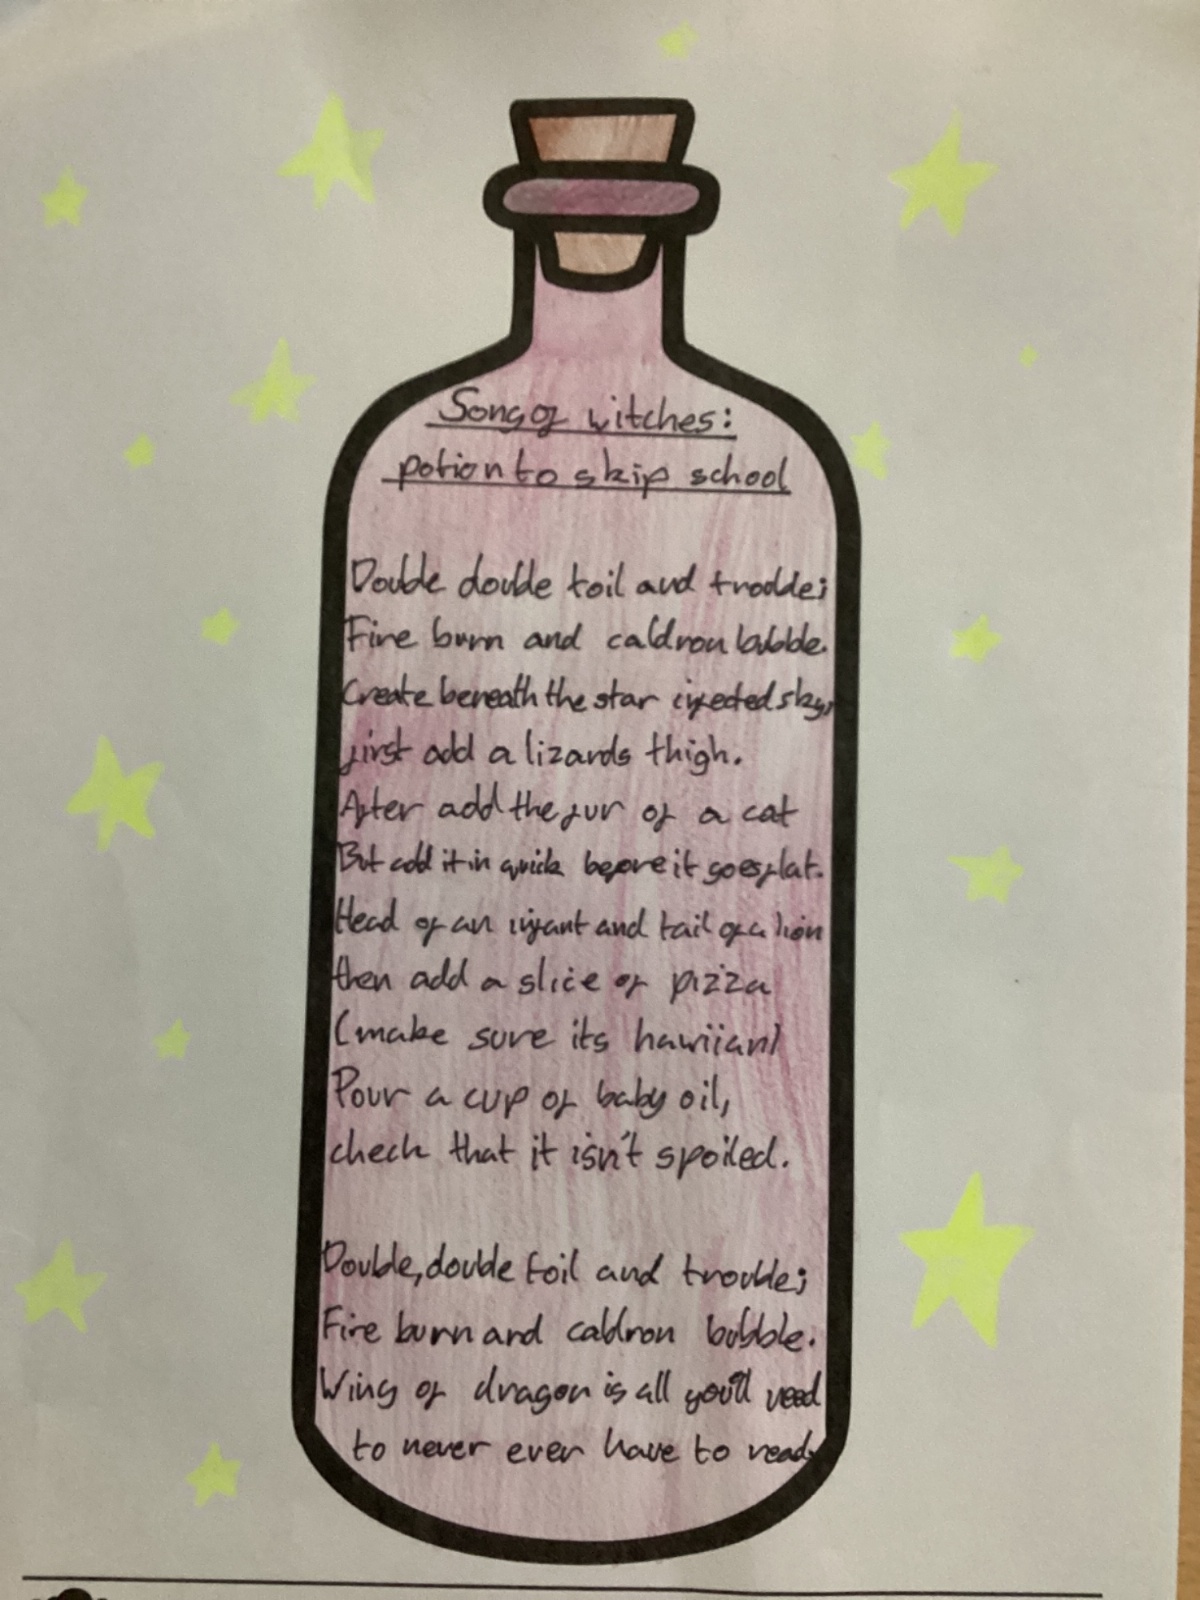 Song of witches:
potion to skip school
Double double toil and trodde;
Fire burn and caldron bubble.
Create beneath the star infected sky,
first add a lizards thigh.
After add the fur of a cat
But add it in quick before it goes flat.
Head of an infant and tail of a lion
then add a slice of pizza
(make sure its hawiian)
Pour a cup of baby oil,
check that it isn't spoiled.
Double, double toil and trouble;
Fire burn and caldron bubble.
Wing of dragon is all you'll need
to never ever have to read.